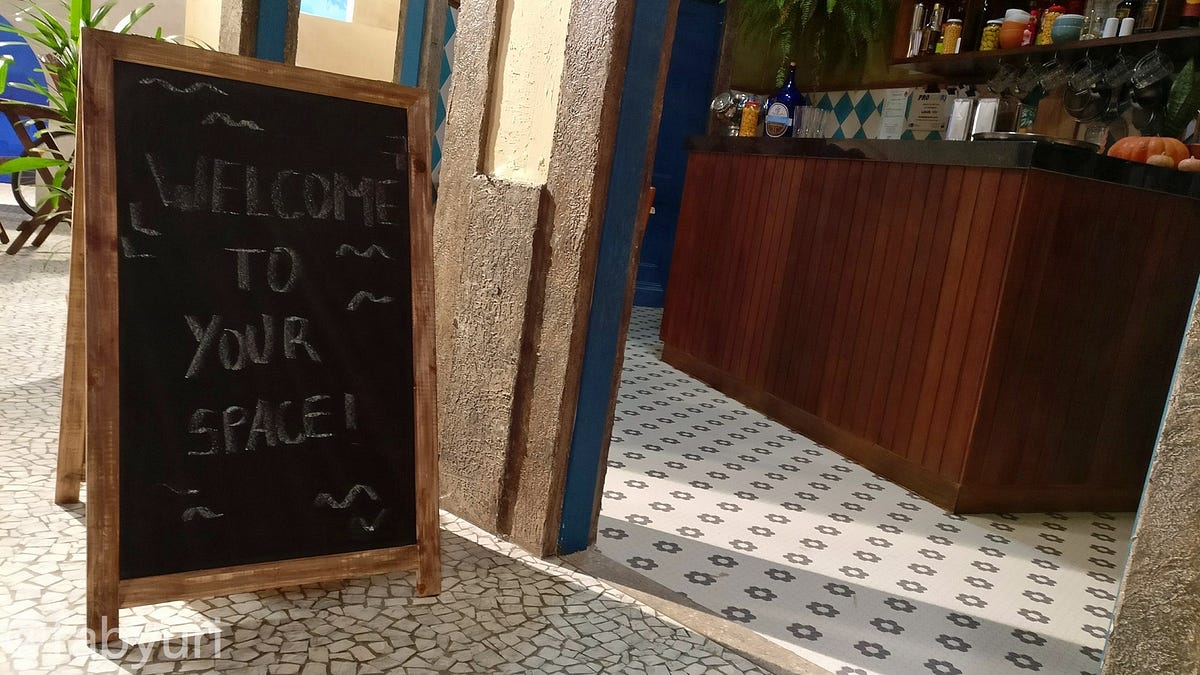 WELCOME
TO
YOUR
SPACE!
PRO